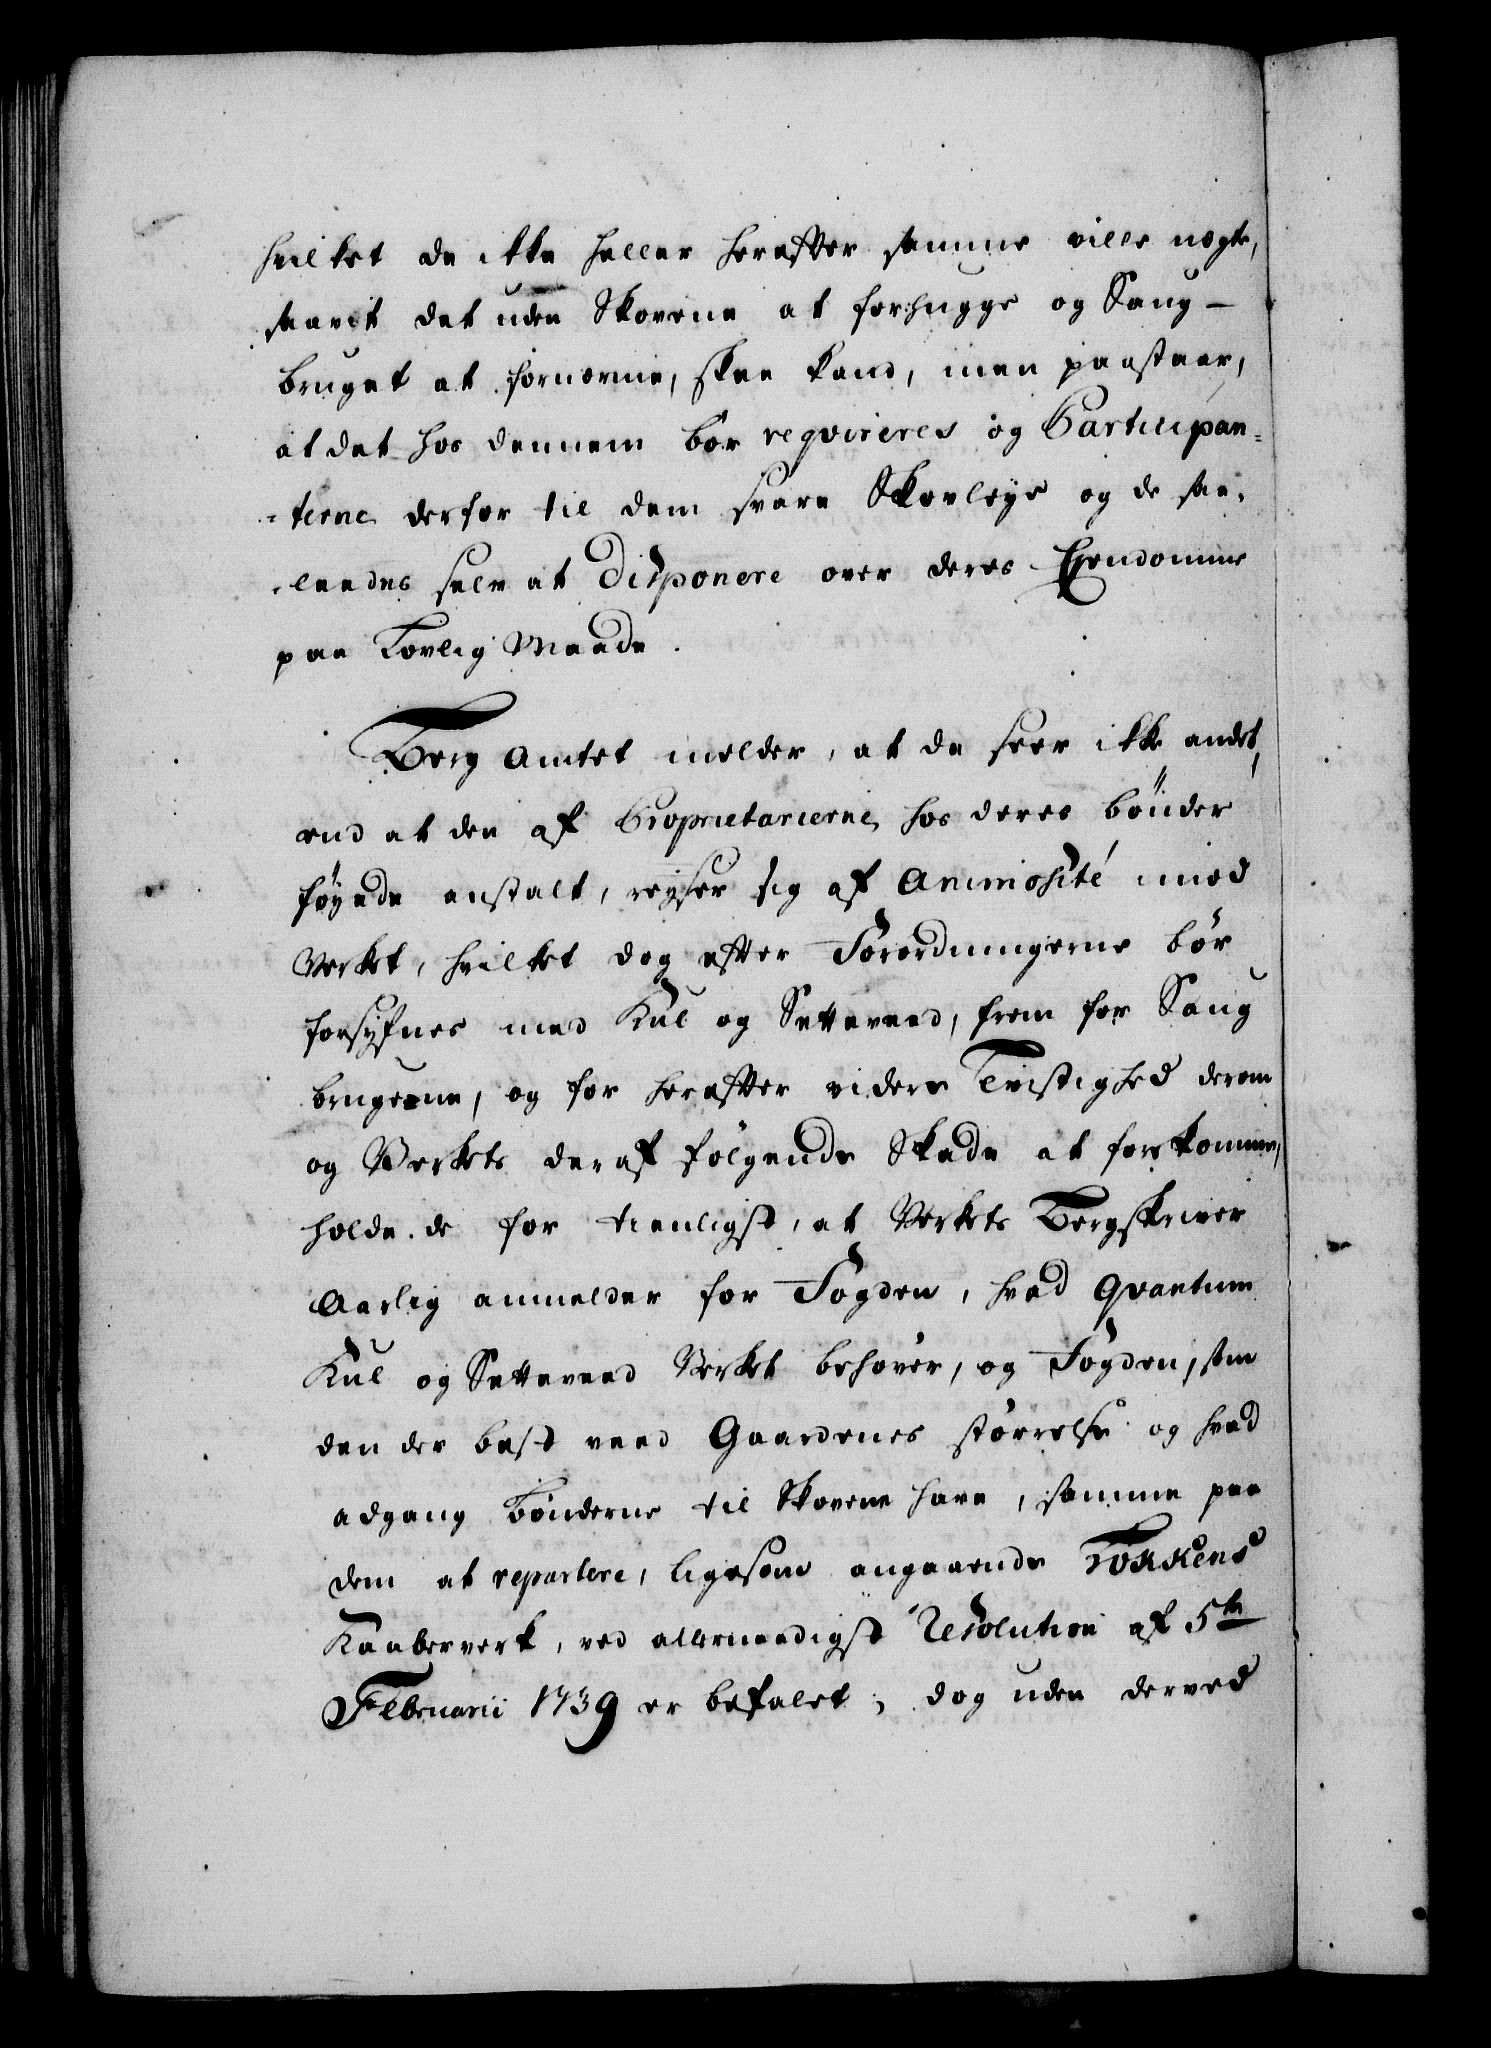 hvilket de ikke heller herefter samme ville negte,
saavit det uden Skovene at forhugge og Saug-
bruget at fornerme, skee kand, men paastaar,
at det hos dennem bør reqvireres og Participan-
-terne derfor til dem svare Skovleye og de saa-
-leedes selv at Disponere over deres Eyendomme
paa Lovlig Maade.
Berg Amtet melder, at de seer ikke andet,
end at den af Proprietarierne hos deres bönder
föyede anstalt, reyser sig af Animosité imod
Verket, hvilket dog efter Forordningerne bör
forsÿfnes med Kul og Setteveed, frem for Saug
brugerne, og for herefter videre Tvistighed derom
og Verkets deraf fölgende Skade at forekomme,
holde de for tienligst, at Verkets Bergskriver
Aarlig anmelder for Fogden, hvad Qvantum
Kul og Setteveed Verket behøver, og Fogden, som
den der best veed Gaardenes störrelse og hvad
adgang Bönderne til Skovene have, samme paa
dem at repartere, ligesom angaaende Fokkens
Kaaberverk, ved allernaadigst Resolution af 5te
Februarii 1739 er befalet; dog uden derved